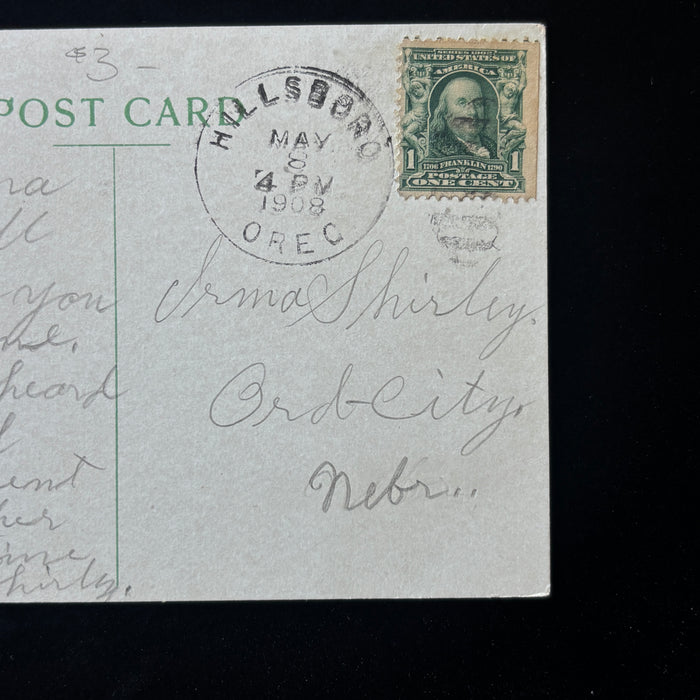 $3-
POST CARD
HILLSBORO
MAY
8
4 PM
1908
OREG.
SERIES 1902
UNITED STATES OF
AMERICA
1706 FRANKLIN 1790
1 POSTAGE 1
ONE CENT
Irma Shirley.
Ord-City,
Nebr..
you
heard
ent
her
Shirly.